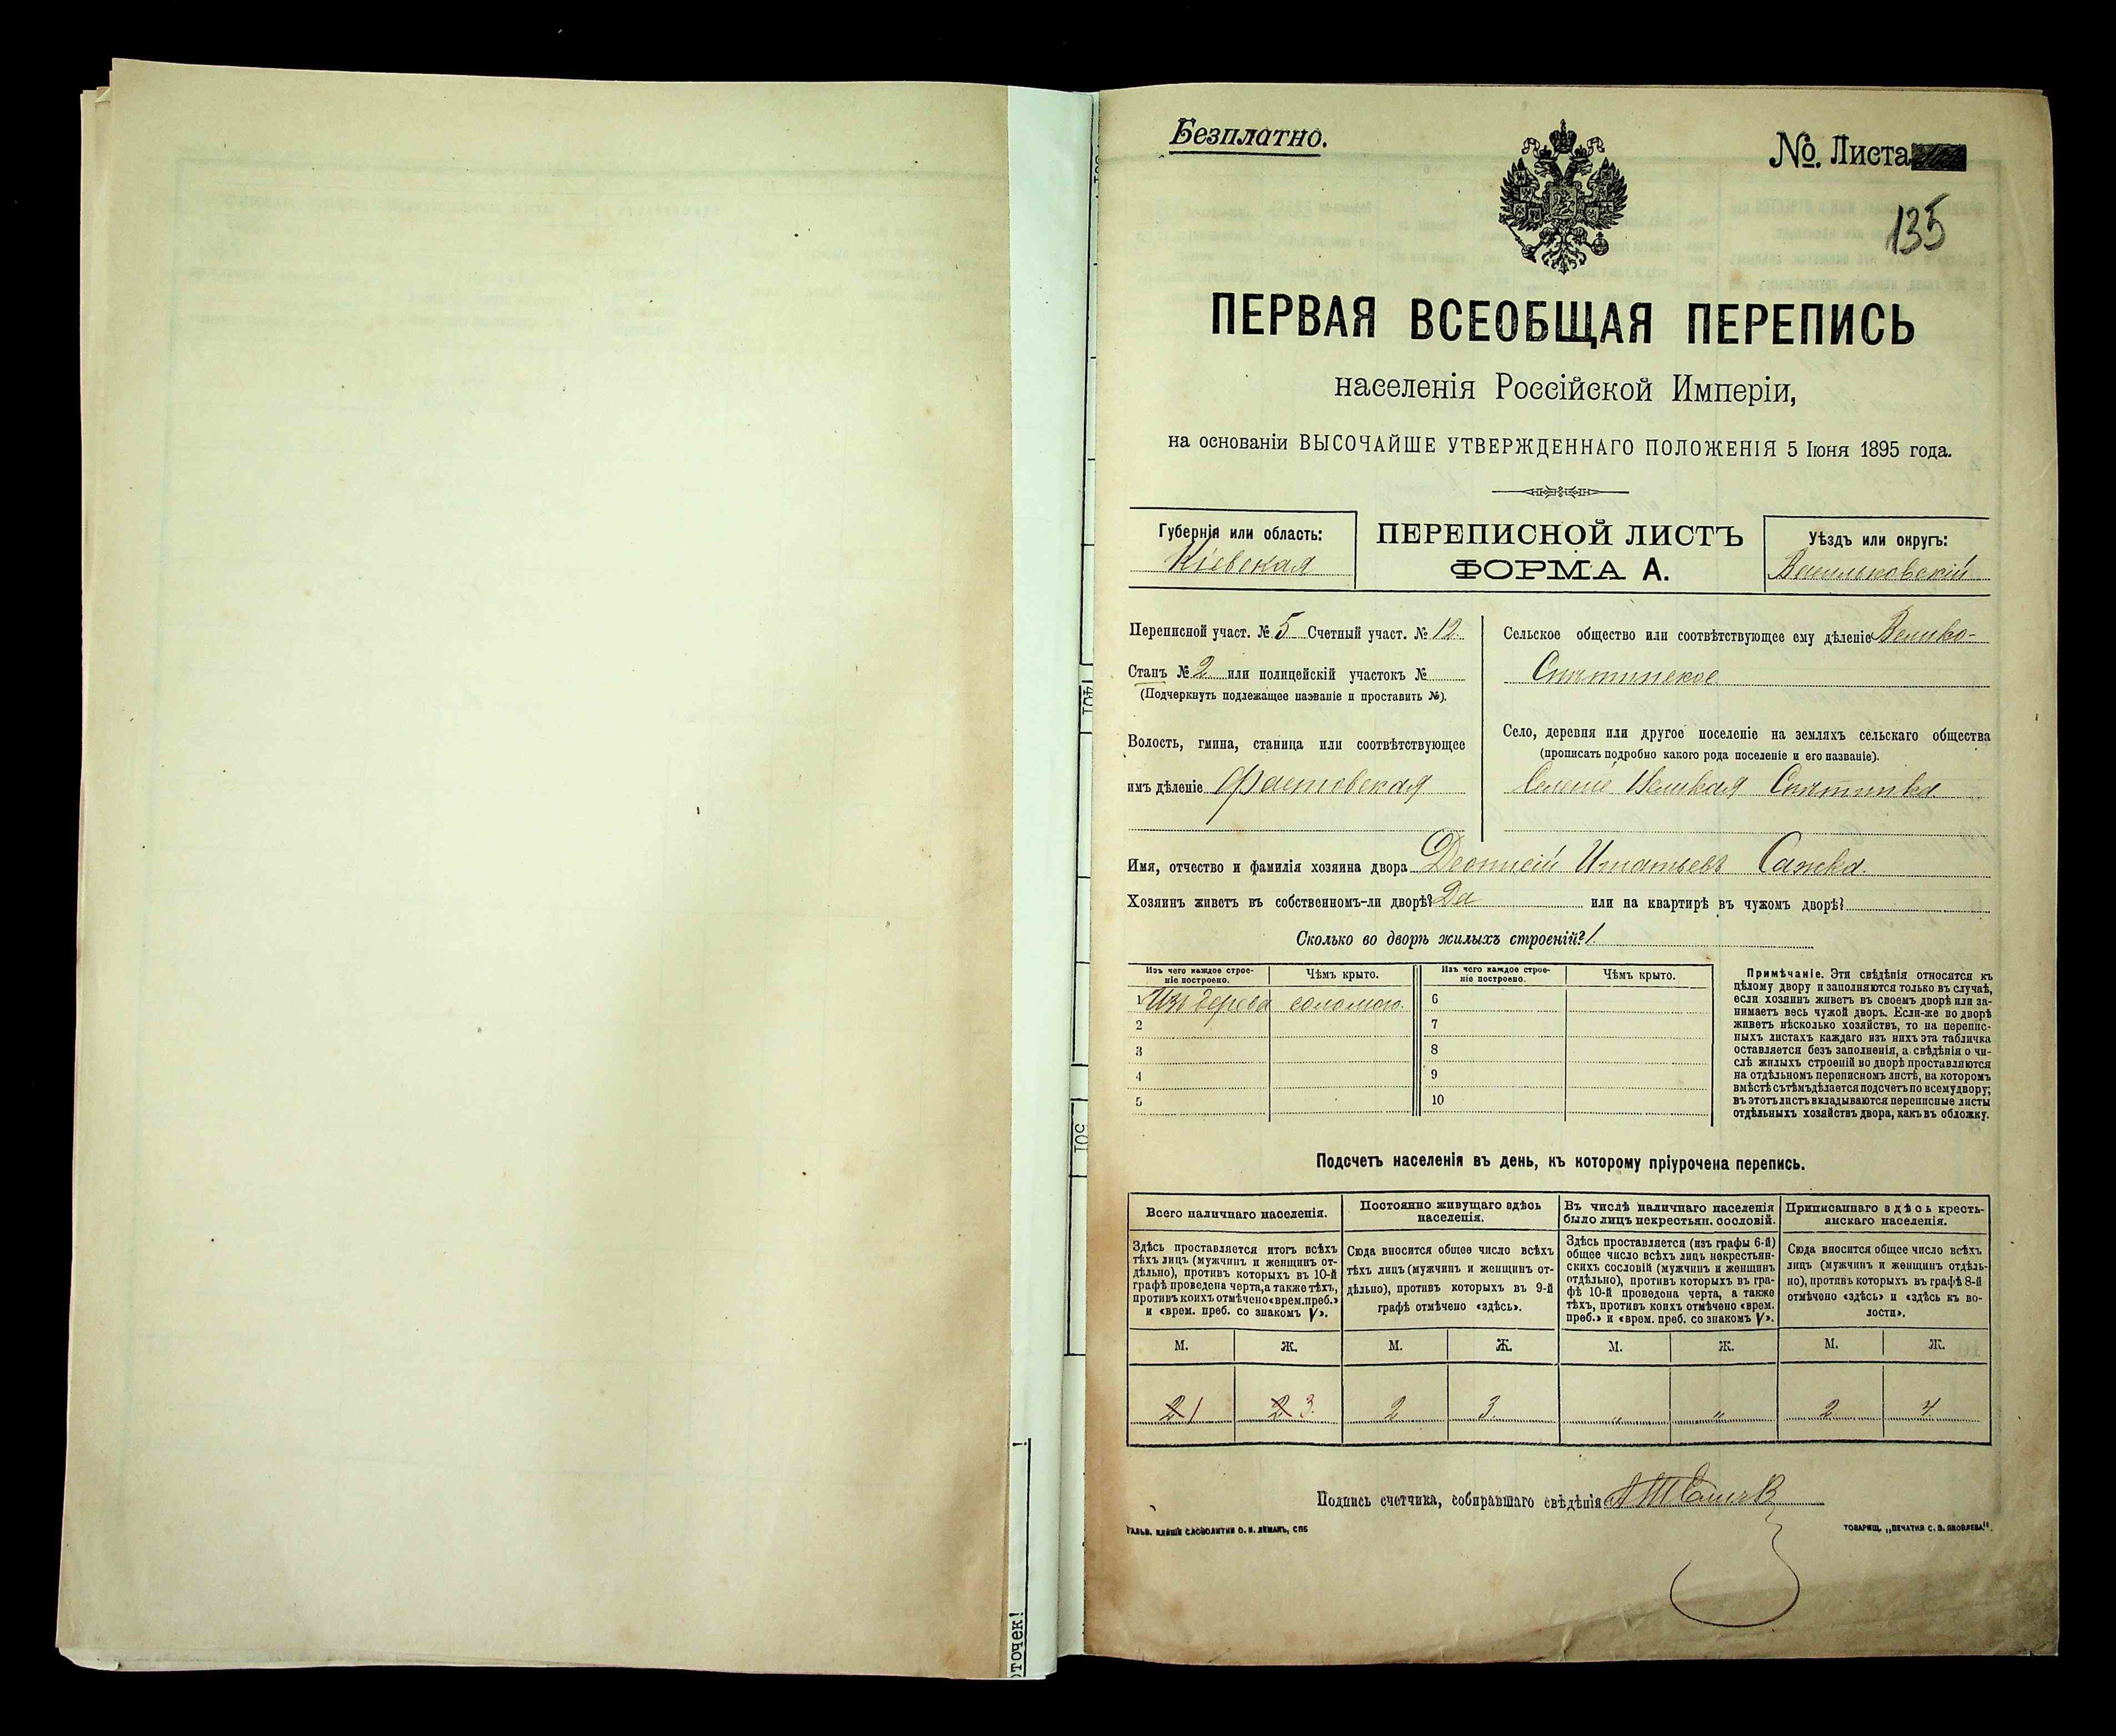 Безплатно.
№. Листа
135
ПЕРВАЯ ВСЕОБЩАЯ ПЕРЕПИСЬ
населенія Россійской Имперіи,
на основаніи ВЫСОЧАЙШЕ УТВЕРЖДЕННАГО ПОЛОЖЕНІЯ 5 Іюня 1895 года.
Губернія или область:
Кіевская
ПЕРЕПИСНОЙ ЛИСТЪ
ФОРМА А.
Уѣздъ или округъ:
Васильковскій
Переписной участ. № 5 Счетный участ. № 12
Станъ № 2 или полицейскій участокъ №
(Подчеркнуть подлежащее названіе и проставить №).
Волость, гмина, станица или соотвѣтствующее
имъ дѣленіе Фастовская
Сельское общество или соотвѣтствующее ему дѣленіе Велико-
Снѣтинское
Село, деревня или другое поселеніе на земляхъ сельскаго общества
(прописать подробно какого рода поселеніе и его названіе).
Селеніе Великая Снѣтинка
Имя, отчество и фамилія хозяина двора Деонисій Игнатьевъ
Хозяинъ живетъ въ собственномъ-ли дворѣ? Да или на квартирѣ въ чужомъ дворѣ?
Сколько во дворѣ жилыхъ строеній? 1
Изъ чего каждое строе-
ніе построено.
Чѣмъ крыто.
Изъ чего каждое строе-
ніе построено.
Чѣмъ крыто.
1 Изъ дерева соломою. 6
2 7
3 8
4 9
5 10
Примѣчаніе. Эти свѣдѣнія относятся къ
цѣлому двору и заполняются только въ случаѣ,
если хозяинъ живетъ въ своемъ дворѣ или за-
нимаетъ весь чужой дворъ. Если-же во дворѣ
живетъ нѣсколько хозяйствъ, то на перепис-
ныхъ листахъ каждаго изъ нихъ эта табличка
оставляется безъ заполненія, а свѣдѣнія о чи-
слѣ жилыхъ строеній во дворѣ проставляются
на отдѣльномъ переписномъ листѣ, на которомъ
вмѣстѣ съ тѣмъ дѣлается подсчетъ по всему двору;
въ этотъ листъ вкладываются переписные листы
отдѣльныхъ хозяйствъ двора, какъ въ обложку.
Подсчетъ населенія въ день, къ которому пріурочена перепись.
Всего наличнаго населенія.
Здѣсь проставляется итогъ всѣхъ
тѣхъ лицъ (мужчинъ и женщинъ от-
дѣльно), противъ которыхъ въ 10-й
графѣ проведена черта, а также тѣхъ,
противъ коихъ отмѣчено «врем. преб.»
и «врем. преб. со знакомъ V».
Постоянно живущаго здѣсь
населенія.
Сюда вносится общее число всѣхъ
тѣхъ лицъ (мужчинъ и женщинъ от-
дѣльно), противъ которыхъ въ 9-й
графѣ отмѣчено «здѣсь».
Въ числѣ наличнаго населенія
было лицъ некрестьян. сословій.
Здѣсь проставляется (изъ графы 6-й)
общее число всѣхъ лицъ некрестьян-
скихъ сословій (мужчинъ и женщинъ
отдѣльно), противъ которыхъ въ гра-
фѣ 10-й проведена черта, а также
тѣхъ, противъ коихъ отмѣчено «врем.
преб.» и «врем. преб. со знакомъ V».
Приписаннаго здѣсь кресть-
янскаго населенія.
Сюда вносится общее число всѣхъ
лицъ (мужчинъ и женщинъ отдѣль-
но), противъ которыхъ въ графѣ 8-й
отмѣчено «здѣсь» и «здѣсь къ во-
лости».
М. Ж. М. Ж. М. Ж. М. Ж.
2 1 2 3 2 3 " " 2 4
Подпись счетчика, собиравшаго свѣдѣнія
ГАЛЬВ. КЛИШЕ СЛОВОЛИТНИ О. И. ЛЕМАНЪ, СПБ
ТОВАРИЩ. „ПЕЧАТНЯ С. П. ЯКОВЛЕВА".
оточек!